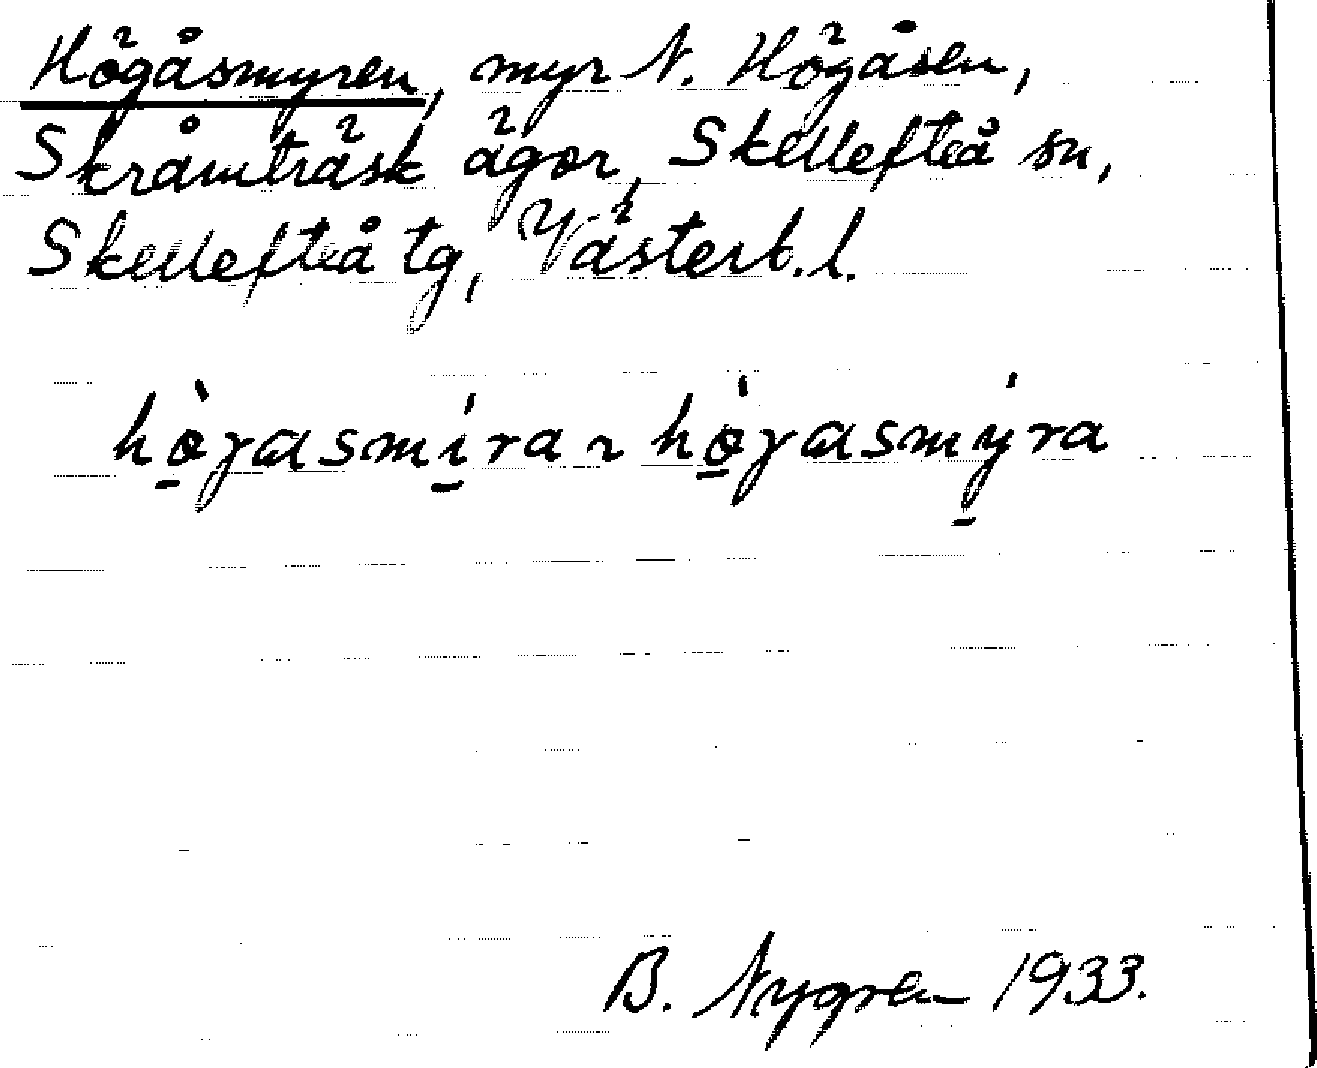 Högåsmyren, myr N. Högåsen,
Skråmträsk ägor, Skellefteå sn,
Skellefteå tg, Västerb. l.
hø̱̀gɑsmí̱ra ~ hø̱̀gɑsmý̱ra
B. Nygren 1933.